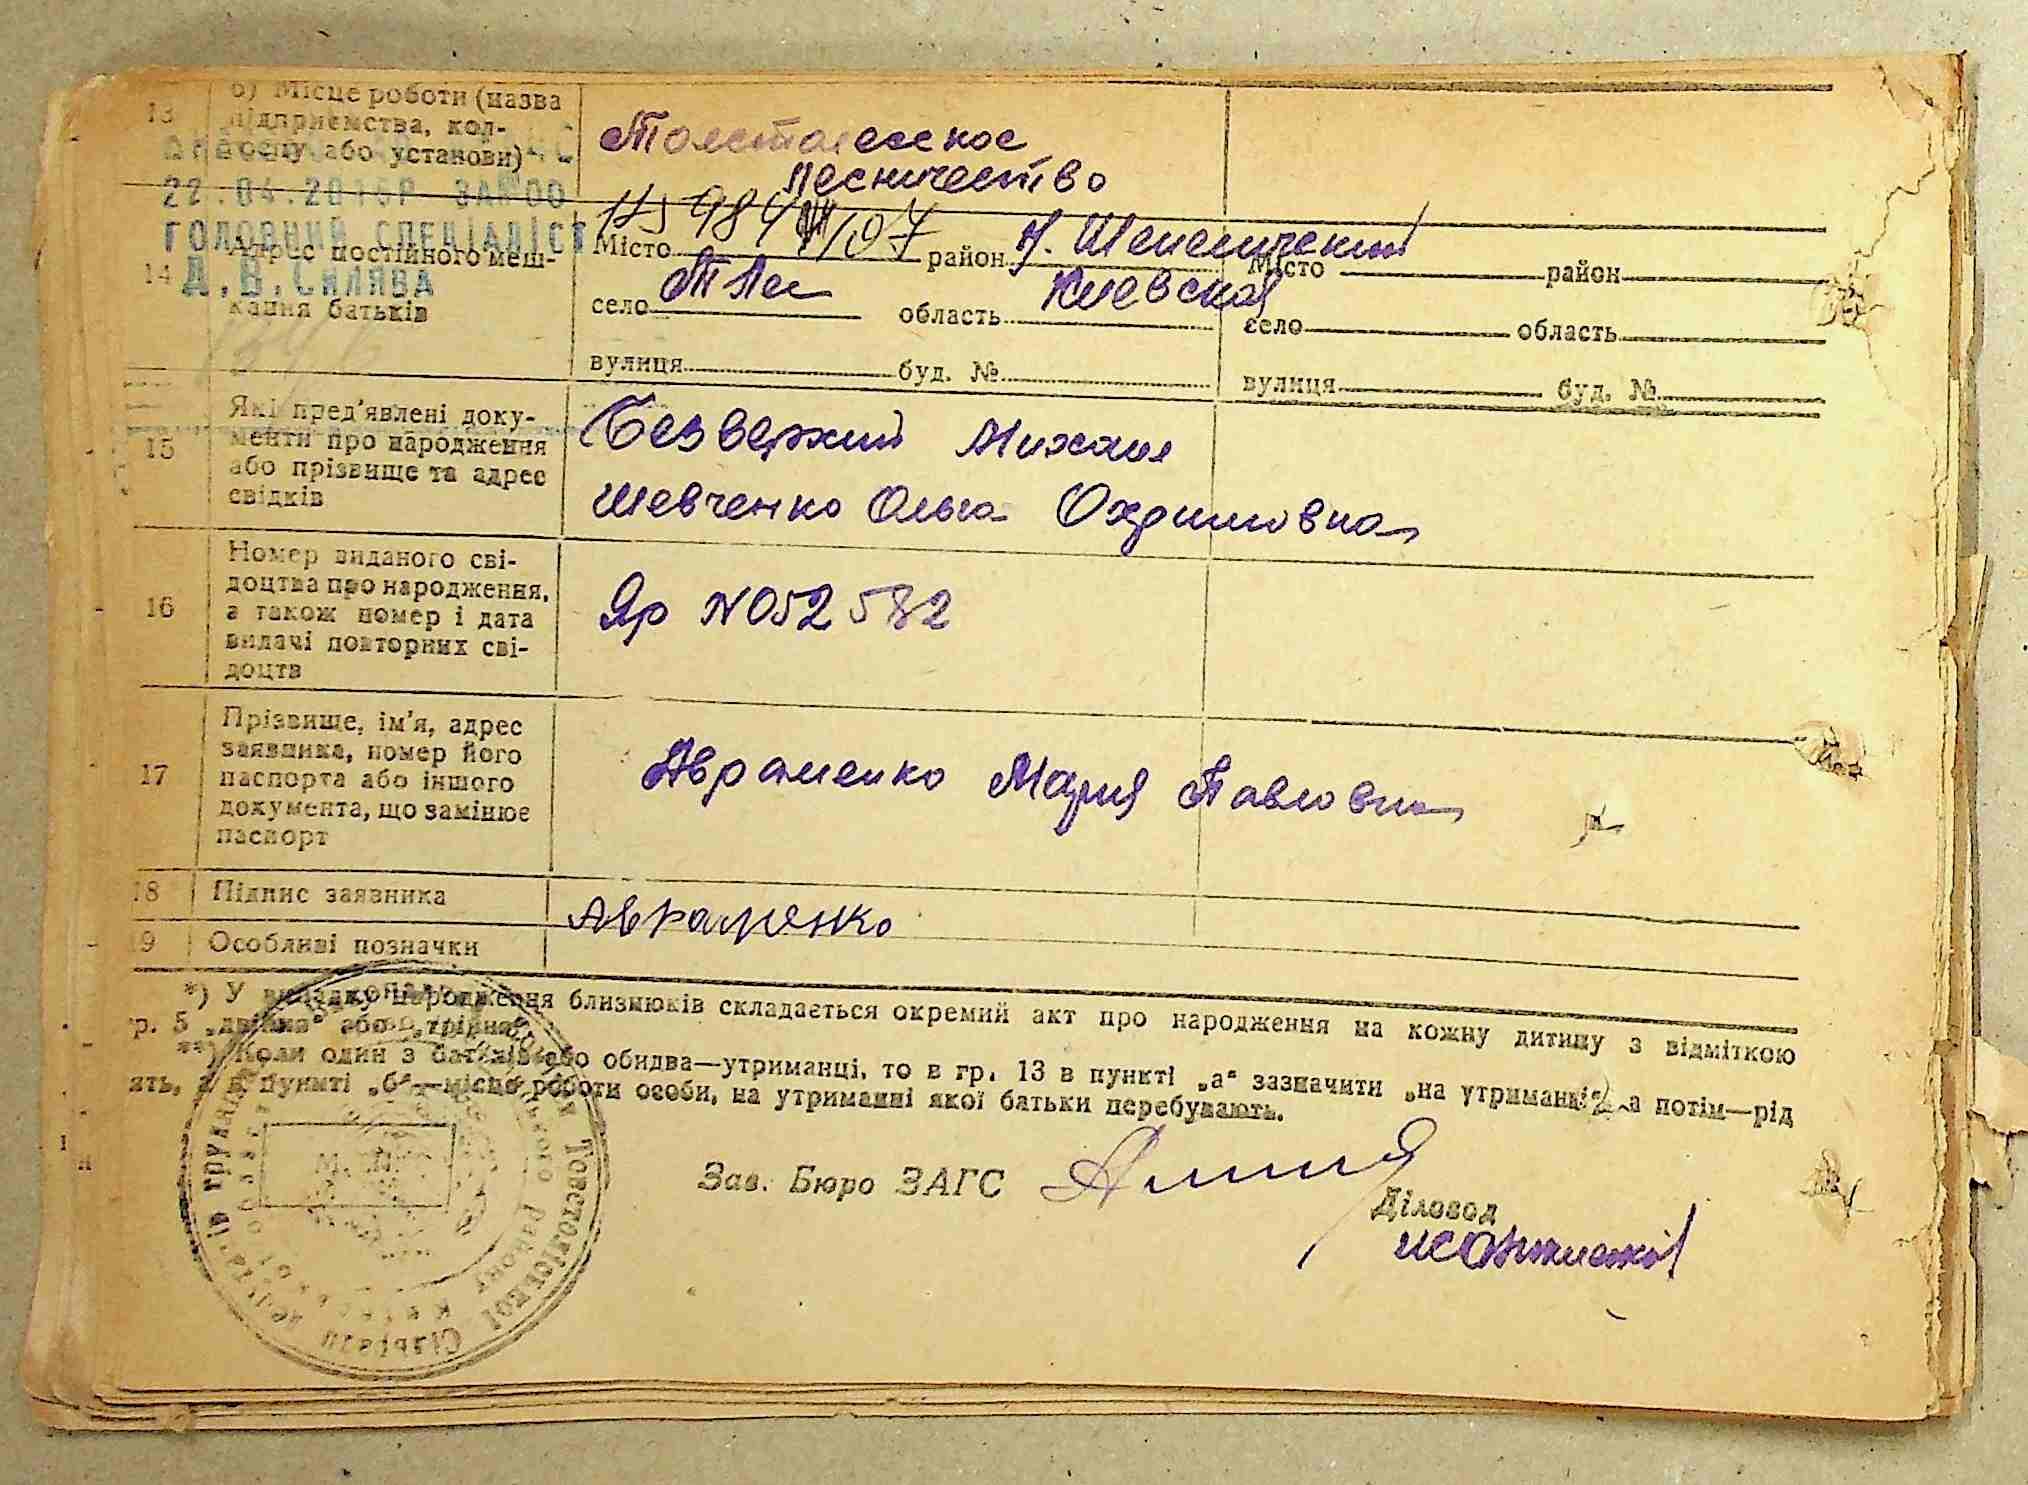 13
б) Місце роботи (назва
підприємства, кол-
госпу або установи)
Толстолесское
Лесничество
22.04.2016Р ЗА№00
ГОЛОВНИЙ СПЕЦІАЛІСТ
Д.В.СИЛЯВА
14
Адрес постійного меш-
кання батьків
Місто район Н. Шепеличский
село Т Лес область Киевская
вулиця буд. №
Місто район
село область
вулиця буд. №
15
Які пред'явлені доку-
менти про народження
або прізвище та адрес
свідків
Безверхий Михаил
Шевченко Ольга Охримовна
16
Номер виданого сві-
доцтва про народження,
а також номер і дата
видачі повторних сві-
доцтв
Яр N052582
17
Прізвище, ім'я, адрес
заявника, номер його
паспорта або іншого
документа, що замінює
паспорт
Авраменко Мария Павловна
18
Підпис заявника
Авраменко
19
Особливі позначки
*) У випадку народження близнюків складається окремий акт про народження на кожну дитину з відміткою
гр. 5 „двійня“ або „трійня“.
**) Коли один з батьків або обидва—утриманці, то в гр. 13 в пункті „а“ зазначити „на утриманні“, а потім—рід
ять, а в пункті „б“—місце роботи особи, на утриманні якої батьки перебувають.
М. П.
Зав. Бюро ЗАГС
Діловод